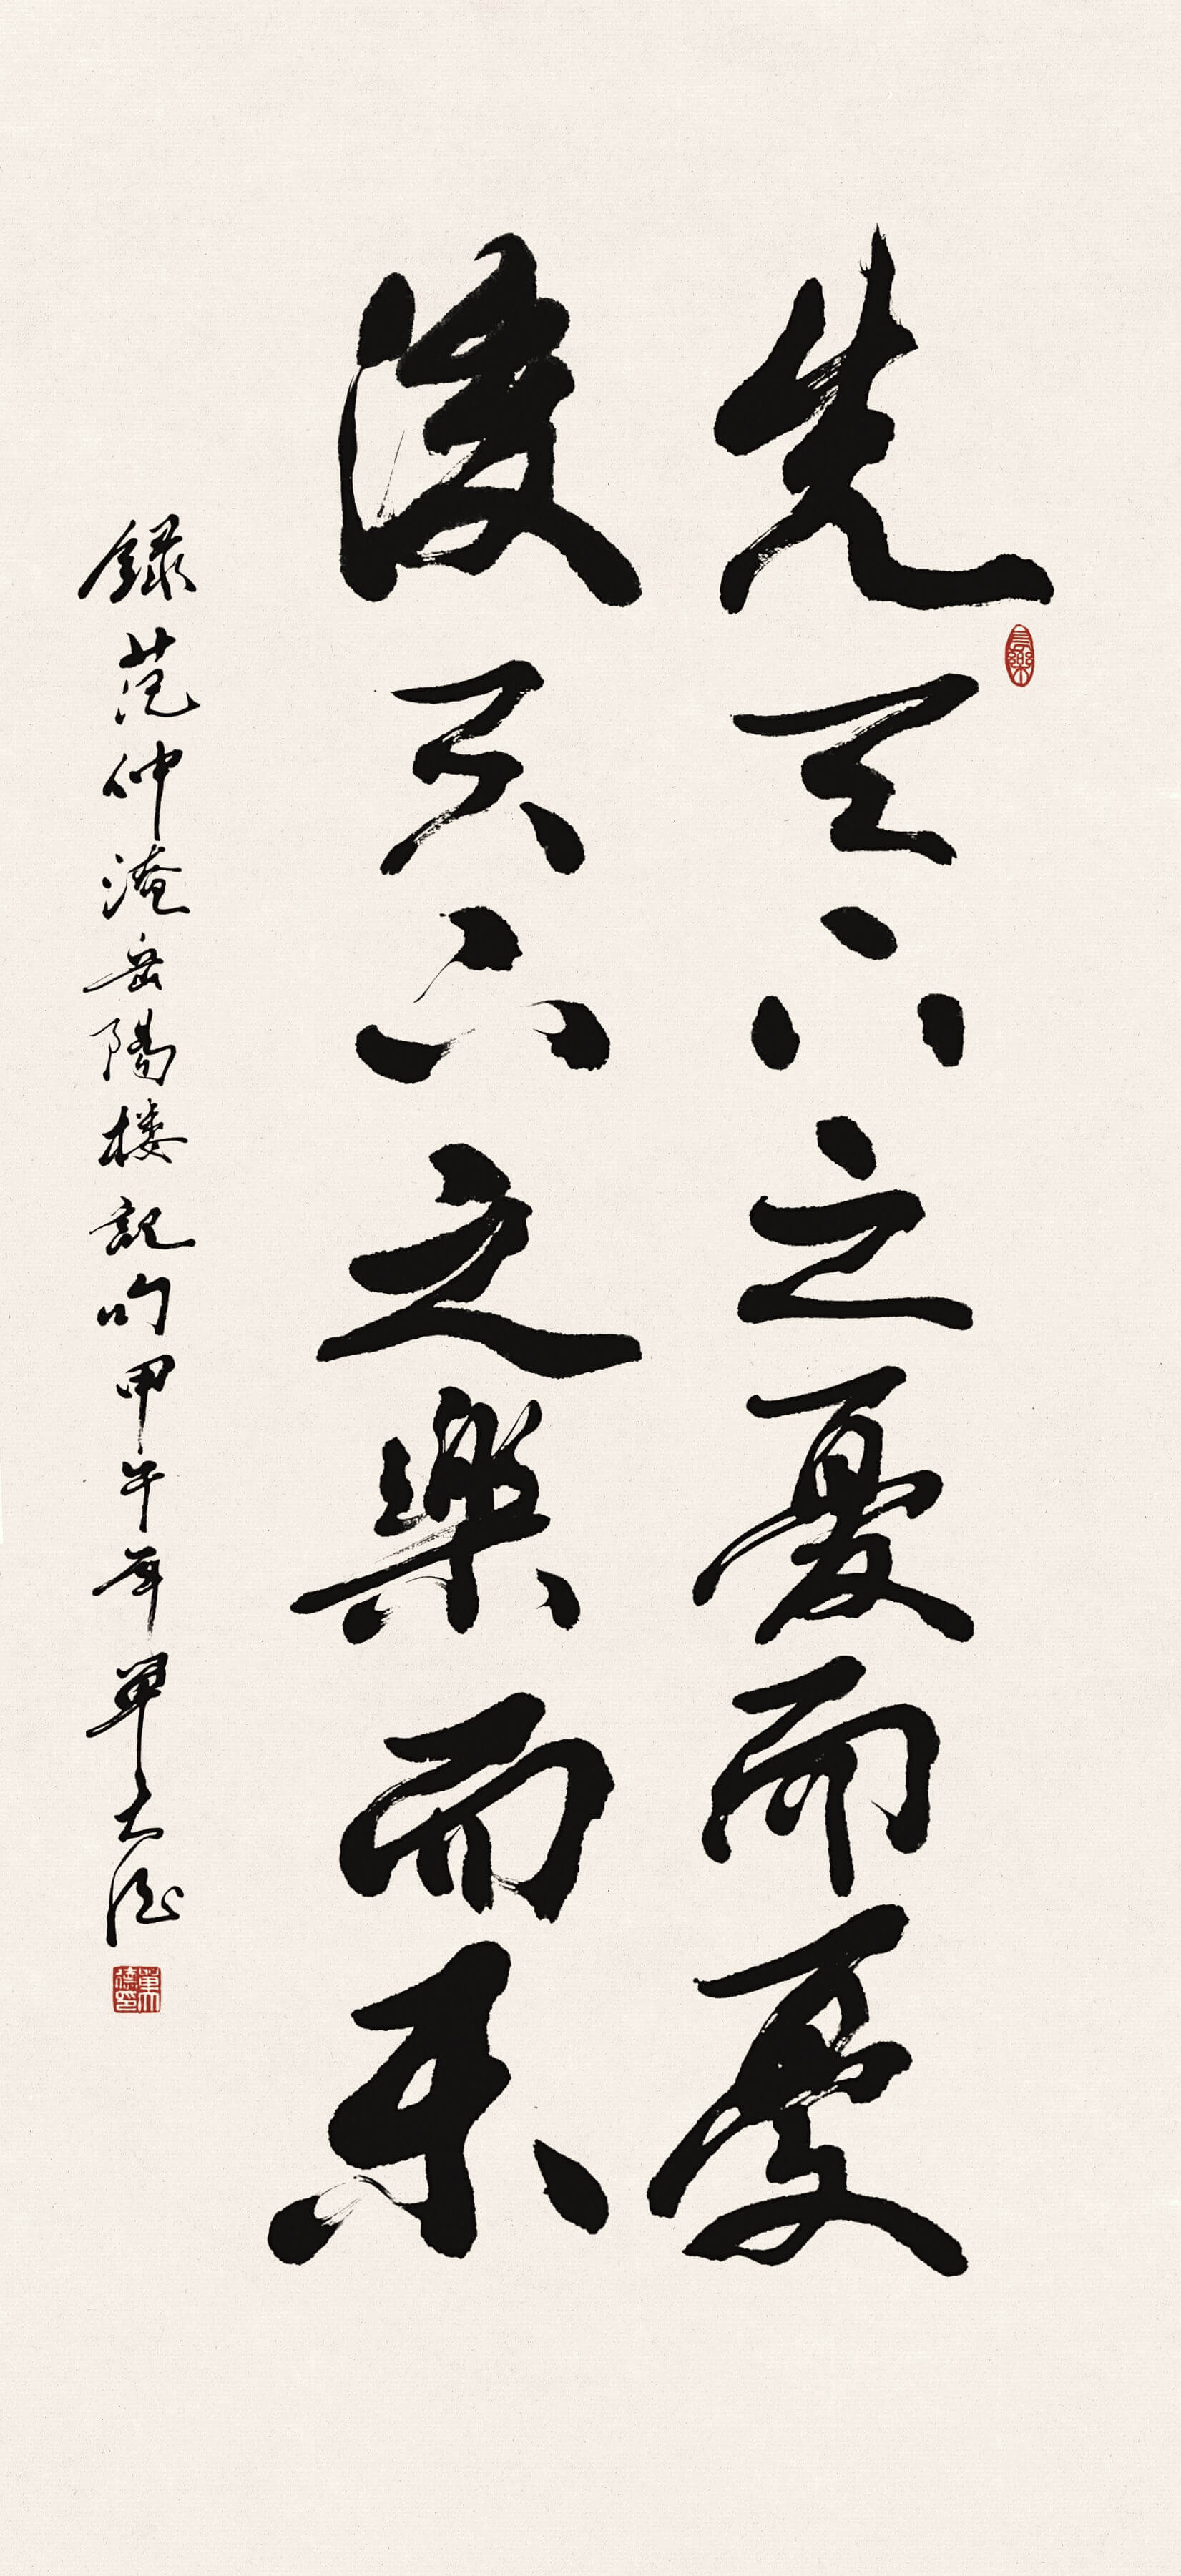 先天下之憂而憂
後天下之樂而乐
錄范仲淹岳陽楼記句甲午年單大德